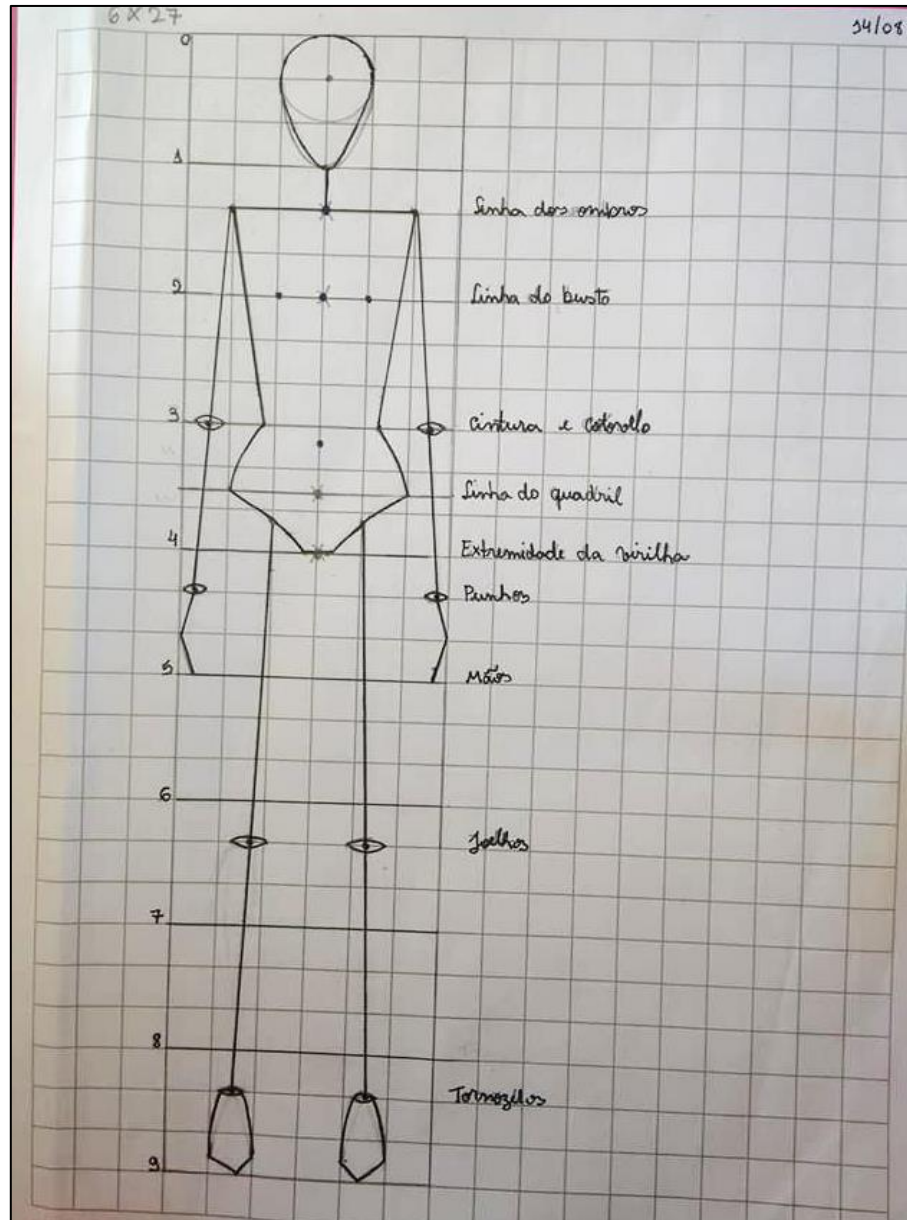 6 x 27
14/08
0
1
Linha dos ombros
2
Linha do busto
3
Cintura e cotovello
Linha do quadril
4
Extremidade da virilha
Punhos
5
Mãos
6
Joelhos
7
8
Tornozilos
9